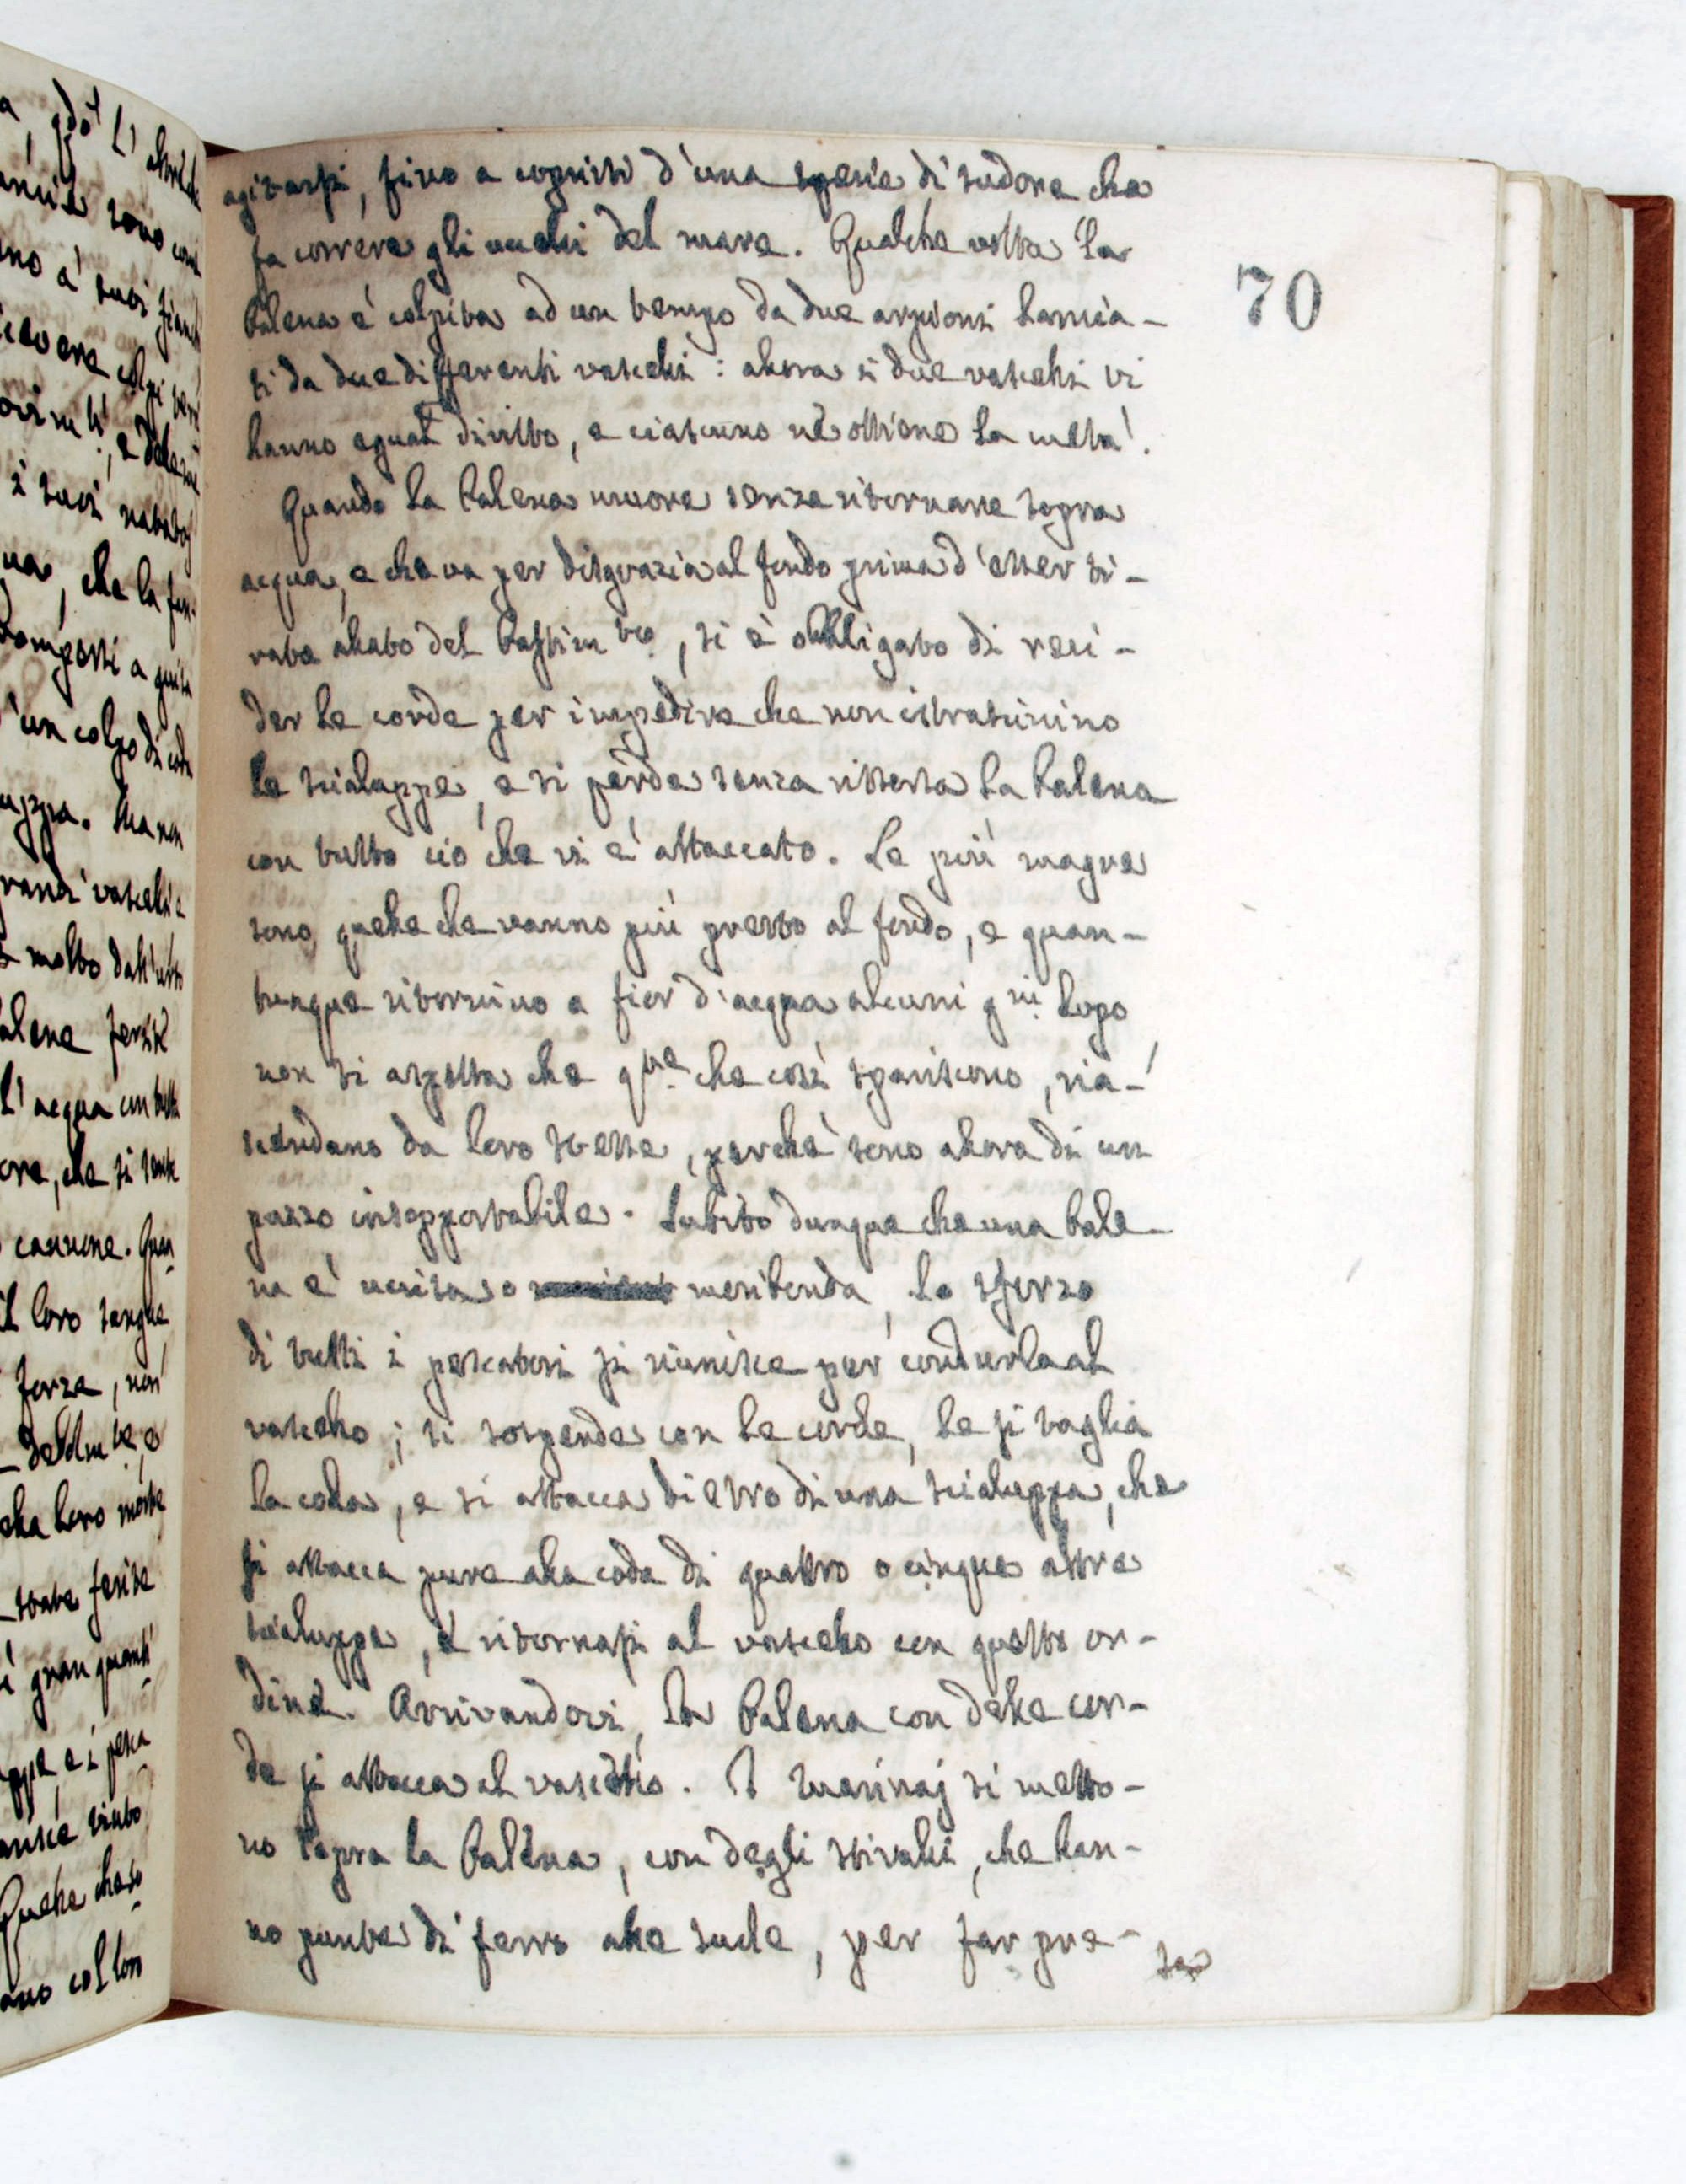 agitarsi, fino a coprirsi d'una specie di sudore che
fa correre gli uccelli del mare. Qualche volta la
balena è colpita ad un tempo da due arpioni lancia-
ti da due differenti vascelli: allora i due vascelli vi
hanno egual diritto, e ciascuno ne ottiene la metà.
Quando la balena muore senza ritornare sopra
acqua, e che va per disgrazia al fondo prima d'esser ti-
rata allato del bastim.to, si è obbligato di reci-
der le corde per impedire che non istrascinino
le scialuppe, e si perde senza risorsa la balena
con tutto ciò che vi è attaccato. Le più magre
sono quelle che vanno più presto al fondo, e quan-
tunque ritornino a fior d'acqua alcuni g.ni dopo
non si aspetta che q.lle che così spariscono, ria-
scendano da loro stesse, perchè sono allora di un
puzzo insopportabile. Subito dunque che una bale-
na è uccisa o moribonda, lo sforzo
di tutti i pescatori si riunisce per condurla al
vascello; si sospende con le corde, le si taglia
la coda, e si attacca dietro di una scialuppa, che
si attacca pure alla coda di quattro o cinque altre
scialuppe, e ritornasi al vascello con questo or-
dine. Arrivandovi, la balena con delle cor-
de si attacca al vascello. I marinaj si metto-
no sopra la balena, con degli stivali, che han-
no punte di ferro alle suole, per far pre-
sa
70